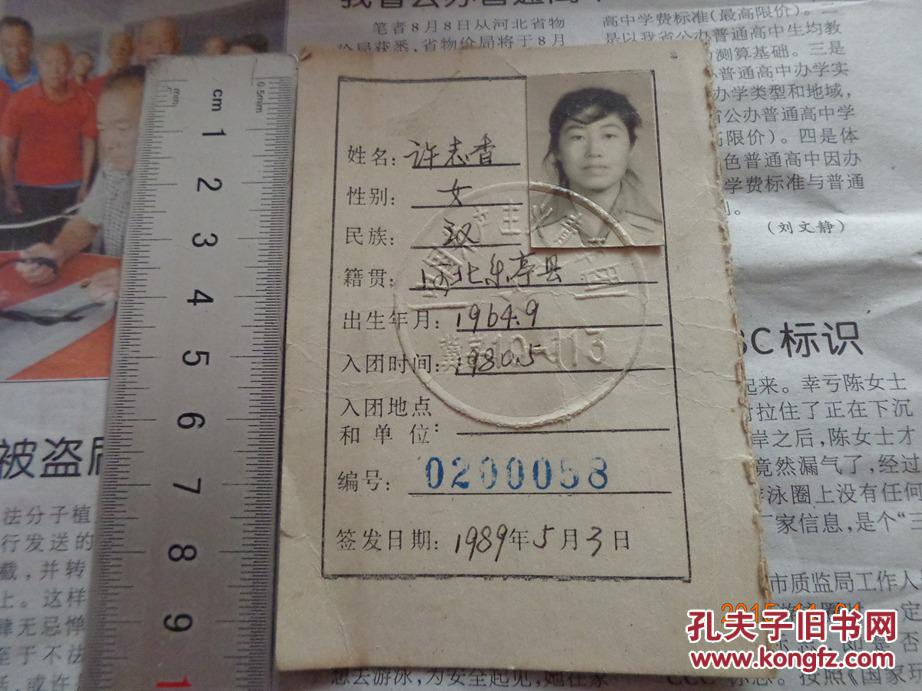 我省公办普通高中
笔者8月8日从河北省物
价局获悉,省物价局将于8月
高中学费标准(最高限价)。二
是以我省公办普通高中生均教
测算基础。三是
普通高中办学实
办学类型和地域,
省公办普通高中学
高限价)。四是体
色普通高中因办
学费标准与普通
。
(刘文静)
mm
cm
0.5mm
1
2
3
4
5
6
7
8
9
1
姓名:许志香
性别:女
民族:汉
籍贯:河北乐亭县
出生年月:1964.9
入团时间:1980.5
入团地点
和单位:
编号:0200058
签发日期:1989年5月3日
C标识
起来。幸亏陈女士
拉住了正在下沉
岸之后,陈女士才
竟然漏气了,经过
泳圈上没有任何
厂家信息,是个“三
市质监局工作人
定
是否
CCC标志。按照《国家
想去游泳,为安全起见,她在家
被盗
法分子植
行发送的
载,并转
上。这样
肆无忌惮
至于不法
话,或许
2015 11 01
孔夫子旧书网
www.kongfz.com